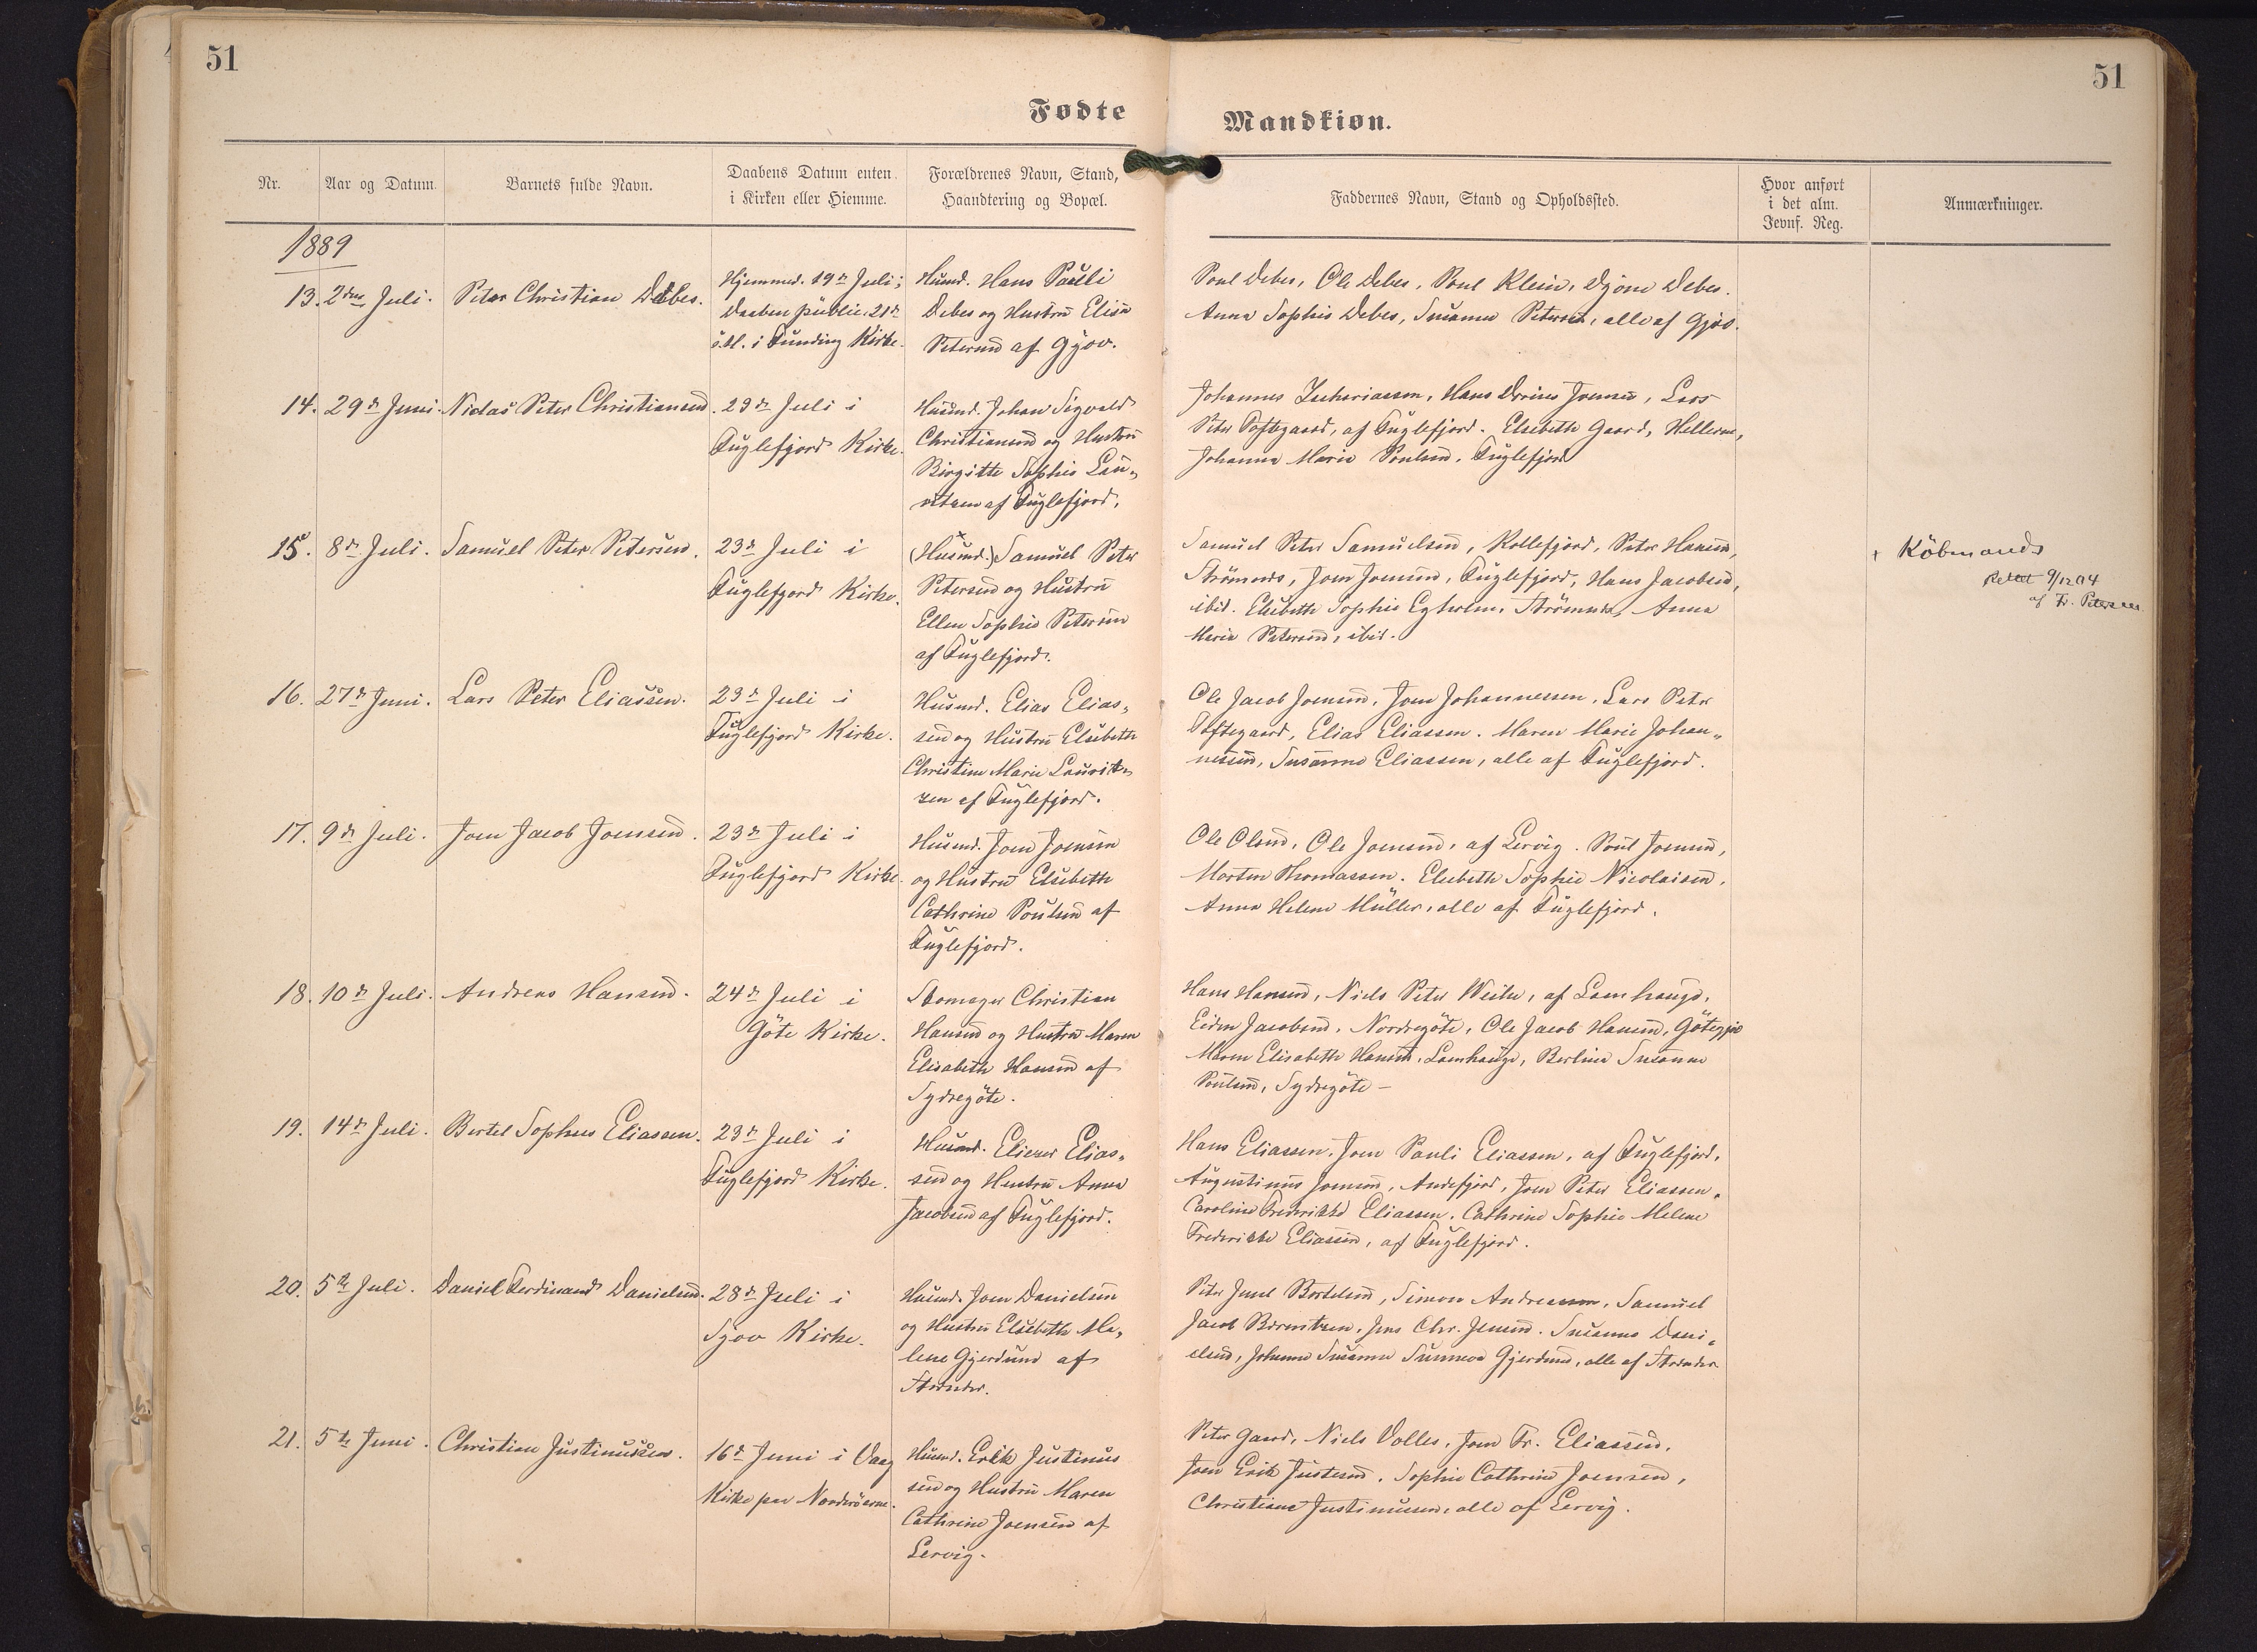 51
51
Fødte
Mandkiøn.
Nr.
Aar og Datum.
Barnets fulde Navn.
Daabens Datum enten
i Kirken eller Hiemme.
Forældrenes Navn, Stand,
Haandtering og Bopæl.
Faddernes Navn, Stand og Opholdssted.
Hvor anført
i det alm.
Jevnf. Reg.
Anmærkninger.
1889
13. 2den Juli. Peter Christian Debes.
Hjemmed. 19de Juli;
Daaben public. 21de
s.M. i Funding Kirke.
Husmd. Hans Pauli
Debes og Hustru Elisa
Petersen af Gjov.
Poul Debes, Ole Debes, Poul Klein, Djone Debes.
Anna Sophie Debes, Susanne Petersen, alle af Gjov.
14. 29de Juni. Niclas Peter Christiansen.
23de Juli i
Fuglefjord Kirke.
Husmd. Johan Sigvald
Christiansen og Hustru
Birgitte Sophie Lau-
ritzen af Fuglefjord.
Johannes Zachariassen, Hans Dorius Joensen, Lars
Peter Toftegaard, af Fuglefjord. Elsebeth Gaard, Hellerne,
Johanna Maria Poulsen, Fuglefjord
15. 8de Juli. Samuel Peter Petersen.
23de Juli i
Fuglefjord Kirke.
(Husmd.)x Samuel Peter
Petersen og Hustru
Ellen Sophie Petersen
af Fuglefjord.
Samuel Peter Samuelsen, Kollefjord, Peter Hansen,
Strömnæs, Joen Joensen, Fuglefjord, Hans Jacobsen,
ibid. Elsebeth Sophie Egholm, Strömnæs, Anna
Maria Petersen, ibid.
x Köbmand
Rettet 9/12 04
af Fr. Petersen
16. 27de Juni. Lars Peter Eliassen.
23de Juli i
Fuglefjord Kirke.
Husmd. Elias Elias-
sen og Hustru Elsebeth
Christine Marie Laurit-
zen af Fuglefjord.
Ole Jacob Joensen, Joen Johannessen, Lars Peter
Toftegaard, Elias Eliassen. Maren Marie Johan-
nessen, Susanne Eliassen, alle af Fuglefjord.
17. 9de Juli. Joen Jacob Joensen.
23de Juli i
Fuglefjord Kirke.
Husmd. Joen Joensen
og Hustru Elsebeth
Cathrine Poulsen af
Fuglefjord.
Ole Olsen, Ole Joensen, af Lervig. Poul Joensen,
Morten Thomassen. Elsebeth Sophie Nicolaisen,
Anna Helene Müller, alle af Fuglefjord.
18. 10de Juli. Andreas Hansen.
24de Juli i
Göte Kirke.
Skomager Christian
Hansen og Hustru Maren
Elisabeth Hansen af
Sydregöte.
Hans Hansen, Niels Peter Weihe, af Lamhauge,
Jacobsen, Nordregöte, Ole Jacob Hansen, Götegjo
Maren Elisabeth Hansen, Lamhauge, Berlina Susanne
Poulsen, Sydregöte –
19. 14de Juli. Bertel Sophus Eliassen.
23de Juli i
Fuglefjord Kirke.
Husmd. Eliezer Elias-
sen og Hustru Anna
Jacobsen af Fuglefjord.
Hans Eliassen, Joen Pauli Eliassen, af Fuglefjord,
Augustinus Joensen, Andefjord, Joen Peter Eliassen,
Caroline Frederikke Eliassen, Cathrine Sophie Helene
Frederikke Eliassen, af Fuglefjord.
20. 5te Juli. Daniel Ferdinand Danielsen.
28de Juli i
Sjov Kirke.
Husmd. Joen Danielsen
og Hustru Elsebeth Ma-
lene Gjerdum af
Strænder.
Peter Juul Bertelsen, Simon Andreassen, Samuel
Jacob Berentsen, Jens Chr. Jensen. Susanne Dani-
elsen, Johanne Susanne Sunneva Gjerdum, alle af Strænder
21. 5te Juni. Christian Justinussen.
16de Juni i Vaag
Kirke paa Norderöerne.
Husmd. Erik Justinus
sen og Hustru Maren
Cathrine Joensen af
Lervig.
Peter Gaard, Niels Volles, Joen Fr. Eliassen,
Joen Erik Justesen, Sophie Cathrine Joensen,
Christiane Justinussen, alle af Lervig.